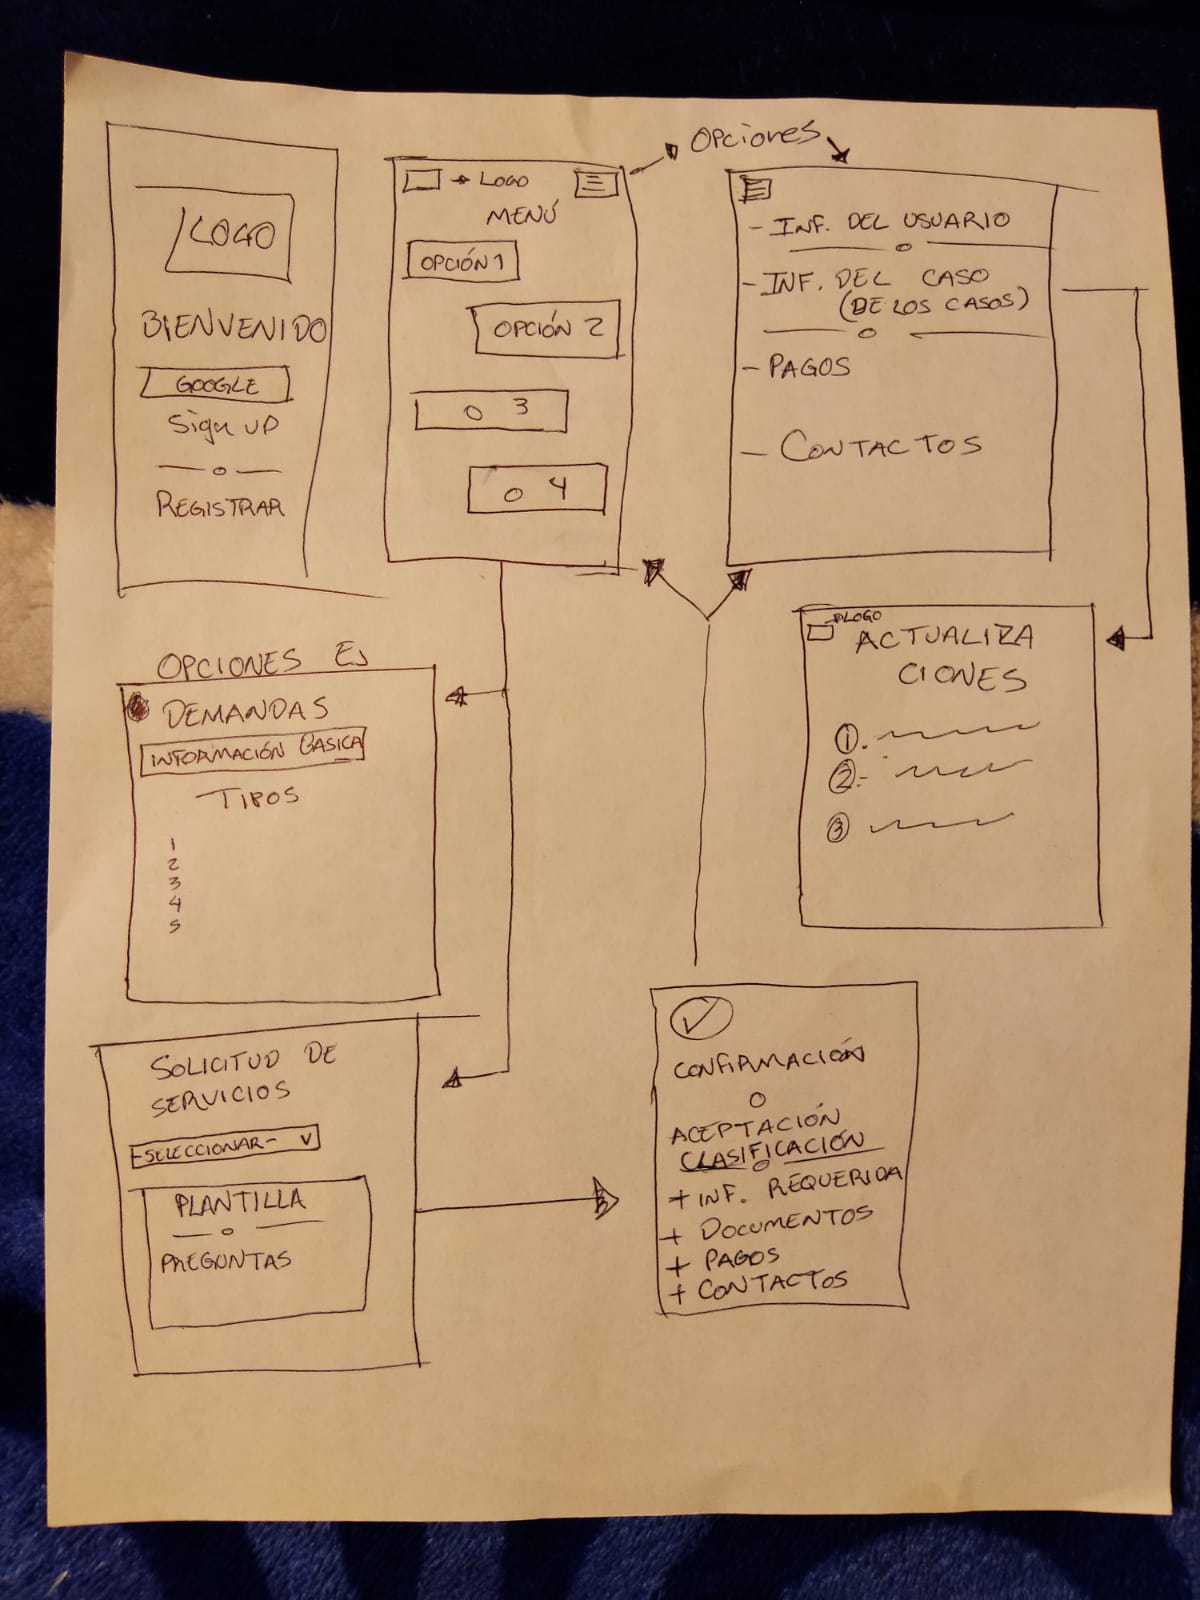 LOGO
BIENVENIDO
GOOGLE
Sign UP
REGISTRAR
LOGO
MENÚ
OPCIÓN 1
OPCIÓN 2
O 3
O 4
OPCiones
- INF. DEL USUARIO
- INF. DEL CASO
(DE LOS CASOS)
- PAGOS
- CONTACTOS
LOGO
ACTUALIZA
CIONES
1.
2.-
3
OPCIONES EJ
DEMANDAS
INFORMACIÓN BASICA
TIPOS
1
2
3
4
5
SOLICITUD DE
SERVICIOS
-SELECCIONAR- V
PLANTILLA
PREGUNTAS
CONFIRMACIÓN
O
ACEPTACIÓN
CLASIFICACIÓN
+ INF. REQUERIDA
+ DOCUMENTOS
+ PAGOS
+ CONTACTOS